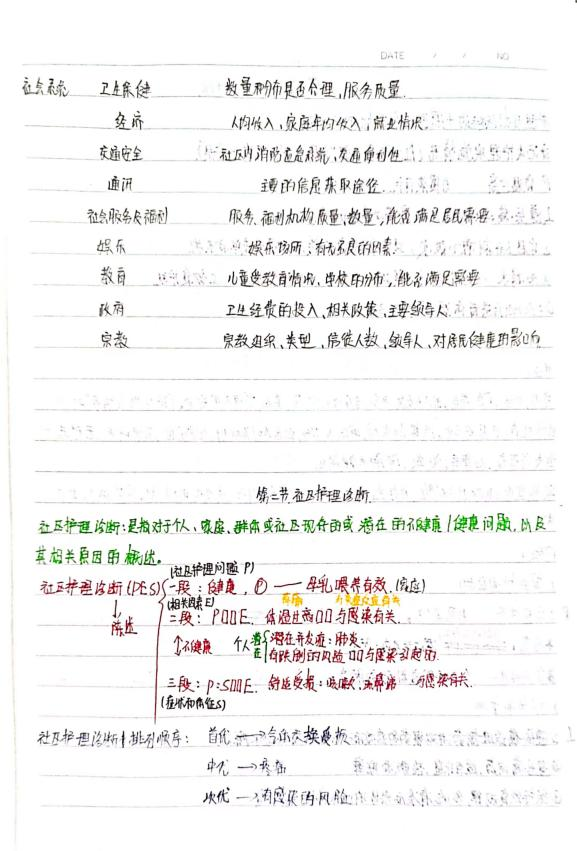 DATE / / NO
社会系统 卫生保健 数量和分布是否合理,服务质量.
经济 人均收入、家庭年均收入、就业情况.
交通安全 社区内消防应急系统,交通便利性.
通讯 主要的信息获取途径.
社会服务及福利 服务、福利机构质量、数量,能否满足居民需要.
娱乐 娱乐场所;有无不良的因素.
教育 儿童受教育情况、学校的分布,能否满足需要.
政府 卫生经费的投入、相关政策、主要领导人.
宗教 宗教组织、类型、信徒人数、领导人、对居民健康的影响
第二节.社区护理诊断
社区护理诊断:是指对于个人、家庭、群体或社区现存的或潜在的不健康/健康问题,以及
其相关原因的概述。
(社区护理问题 P)
社区护理诊断(PES) 一段:健康,P —— 母乳喂养有效.(家庭)
(相关因素E) 疼痛
↓陈述 二段:P□□E. 体温过高□□与感染有关.
↑不健康 个人 潜在 潜在并发症:肺炎.
有跌倒的风险□□与感染引起的.
三段:P:S□□E. 舒适受损:咳嗽、与感染有关.
(症状和体征S)
社区护理诊断排列顺序: 首优 → 气体交换受损
中优 → 疼痛
次优 → 有感染的风险